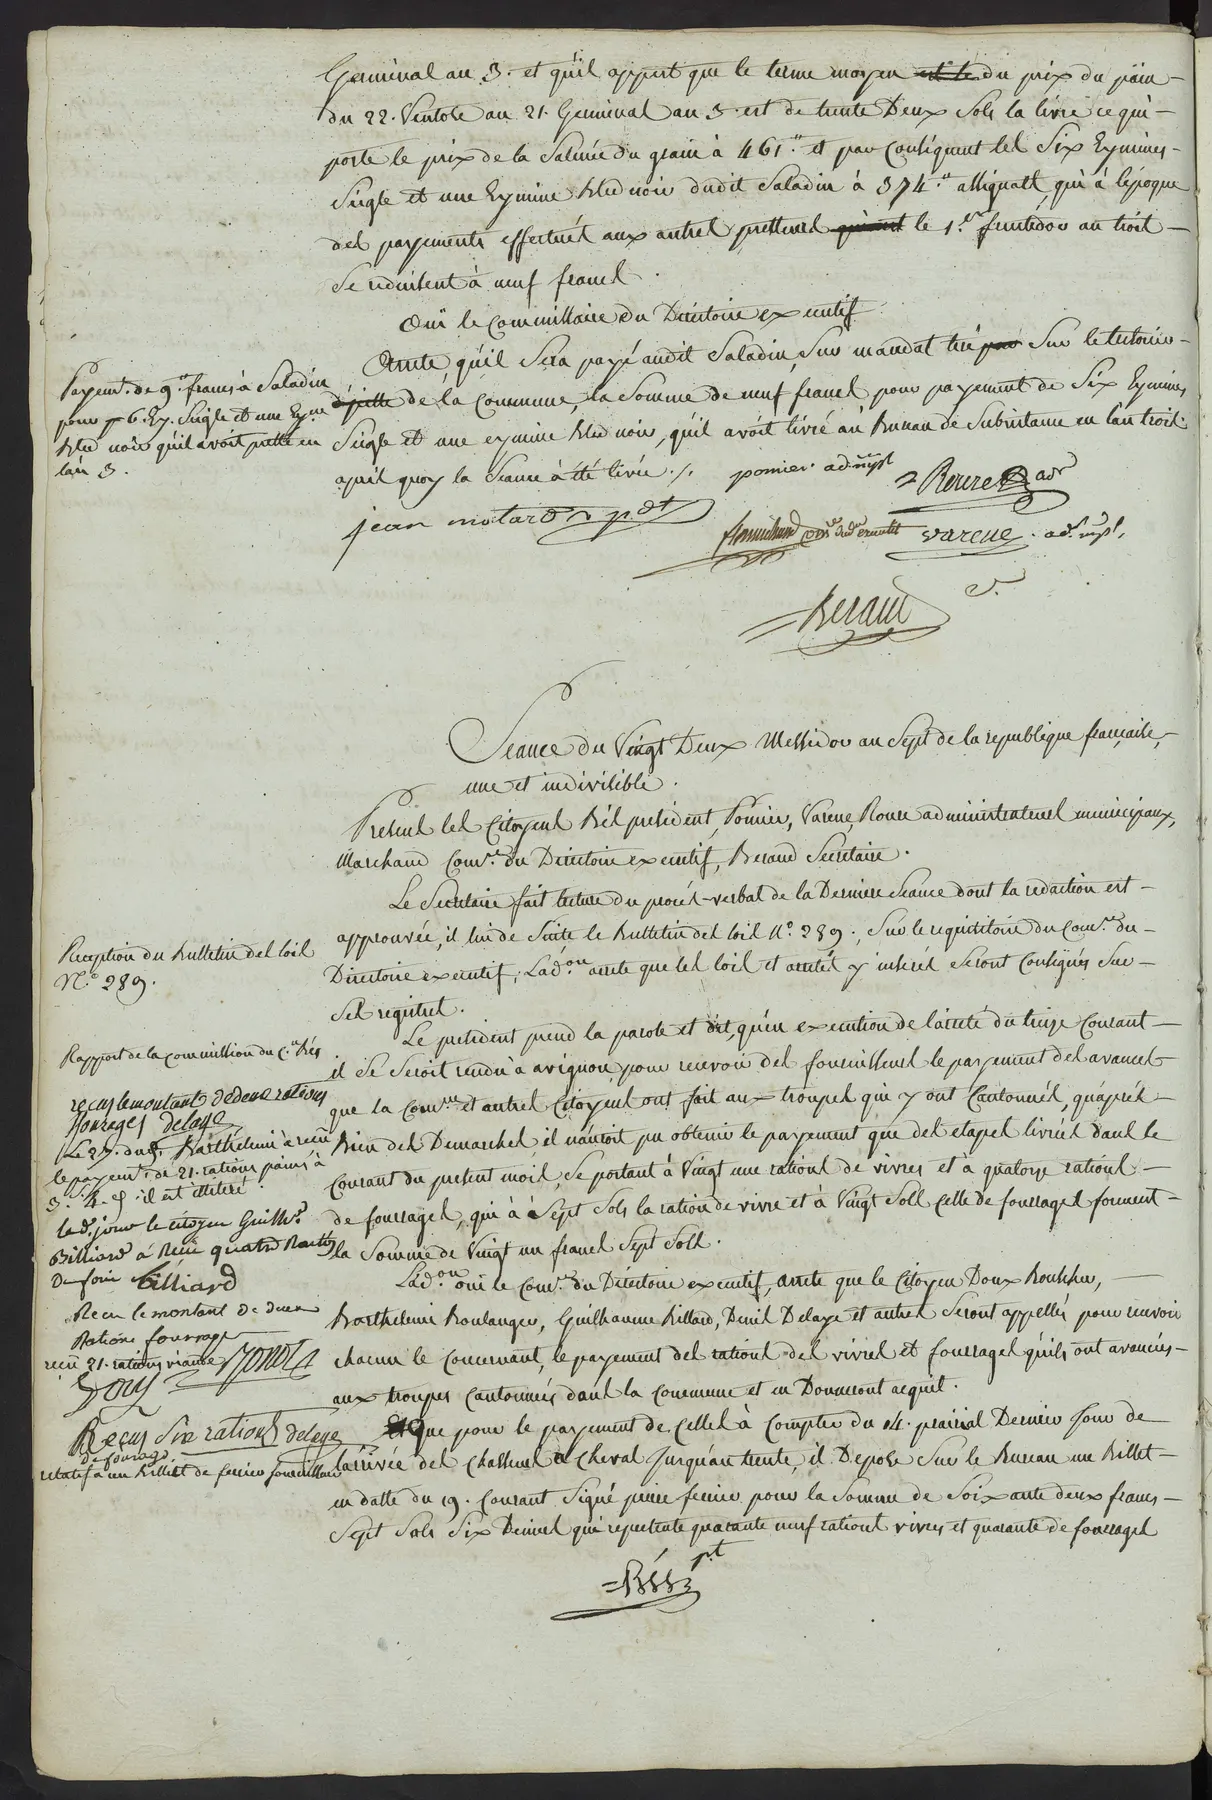 Germinal an 3. et qu'il appert que le terme moyen est le du prix du pain
du 22. Ventose au 21. Germinal an 3 est de trente Deux Sols la livre ce qui
porte le prix de la Salmée du grain à 461.# et par Conséquent les Six Eymines
Seigle et une Eymine bled noir dudit Saladin à 374.# assignats, qui à lépoque
des payements effectués aux autres pretteurs le 1.er fructidor an trois
Se reduisent à neuf francs.
Oui le Commissaire du Directoire executif
Arrete qu'il Sera payé audit Saladin, Sur mandat tiré par Sur le tresorier
de la Commune, la Somme de neuf francs pour payement de Six Eymines
Seigle et une eymine bled noir, qu'il avoit livré au Bureau de Subsistance en l'an trois.
après quoy la Seance à été livée ./.
Payem.t de 9. francs à Saladin
pour 6. Ey. Seigle et une Eyne
bled noir qu'il avoit pretté en
l'an 3.
ponier. ad. mpl
Roure adr
jean motard pdt
Marchand
varene. ad. mpl.
Beraud
Seance du Vingt Deux Messidor an Sept de la republique française,
une et indivisible.
Presents les Citoyens Bès president, Ponier, Varene, Roure administrateurs municipaux,
Marchand Com.re du Directoire executif, Beraud Secretaire.
Le Secretaire fait lecture du procès-verbal de la Derniere Seance dont la redaction est
approuvée, il lui de Suite le Bulletin des loix N.° 289., Sur le requisitoire du Com.re du
Directoire executif, L'ad.on arrete que les loix et arretés y insérés Seront Consignés Sur
Ses registres.
Reception du Bulletin des loix
N.° 289.
Le president prend la parole et dit, qu'en execution de l'arreté du treize Courant
il Se Seroit rendu à avignon pour recevoir des fournisseurs le payement des avances
que la Com.ne et autres Citoyens ont fait aux troupes qui y ont Cantonnés, qu'après
bien des Demarches il n'auroit pu obtenir le payement que des etapes livrées dans le
Courant du present mois, Se portant à Vingt une rations de vivres et à quatorze rations
de fourrages, qui à Sept Sols la ration de vivre et à Vingt Sols Celle de fourrages forment
la Somme de Vingt un francs Sept Sols.
Rapport de la Commission du C.en Bès
reçus le montant de deux rations
fourages delaye
Le 27. dud. Barthelemi à reçu
le payem.t de 21. rations pains à
il est illiteré.
le d. jour le citoyen Guilh.e
Billiard à Reçu quatre Rations
De foin Billiard
Reçu le montant de deux
Rations fourrage
reçu 21. rations viande
Recus Six rations delaye
de fourage
relatif à un Billiet de ferrier fournisseur
L'ad.on oui le Com.re du Directoire executif, arrete que le Citoyen Doux Boucher,
Barthelemi Boulanger, Guilhaume Billard, Denis Delaye et autres Seront appellés pour recevoir
chacun le Concernant, le payement des rations des vivres et fourrages qu'ils ont avancés
aux troupes Cantonnées dans la Commune et en Donneront acquit.
Que pour le payement de Celles à Compter du 14. prairial Dernier jour de
l'arrivée des Chasseurs à Cheval jusqu'au trente, il Depose Sur le Bureau un Billet
en datte du 19. Courant Signé pierre ferrier pour la Somme de Soixante deux francs
Sept Sols Six Deniers qui represente quarante neuf rations vivres et quarante de fourrages
Bès pt